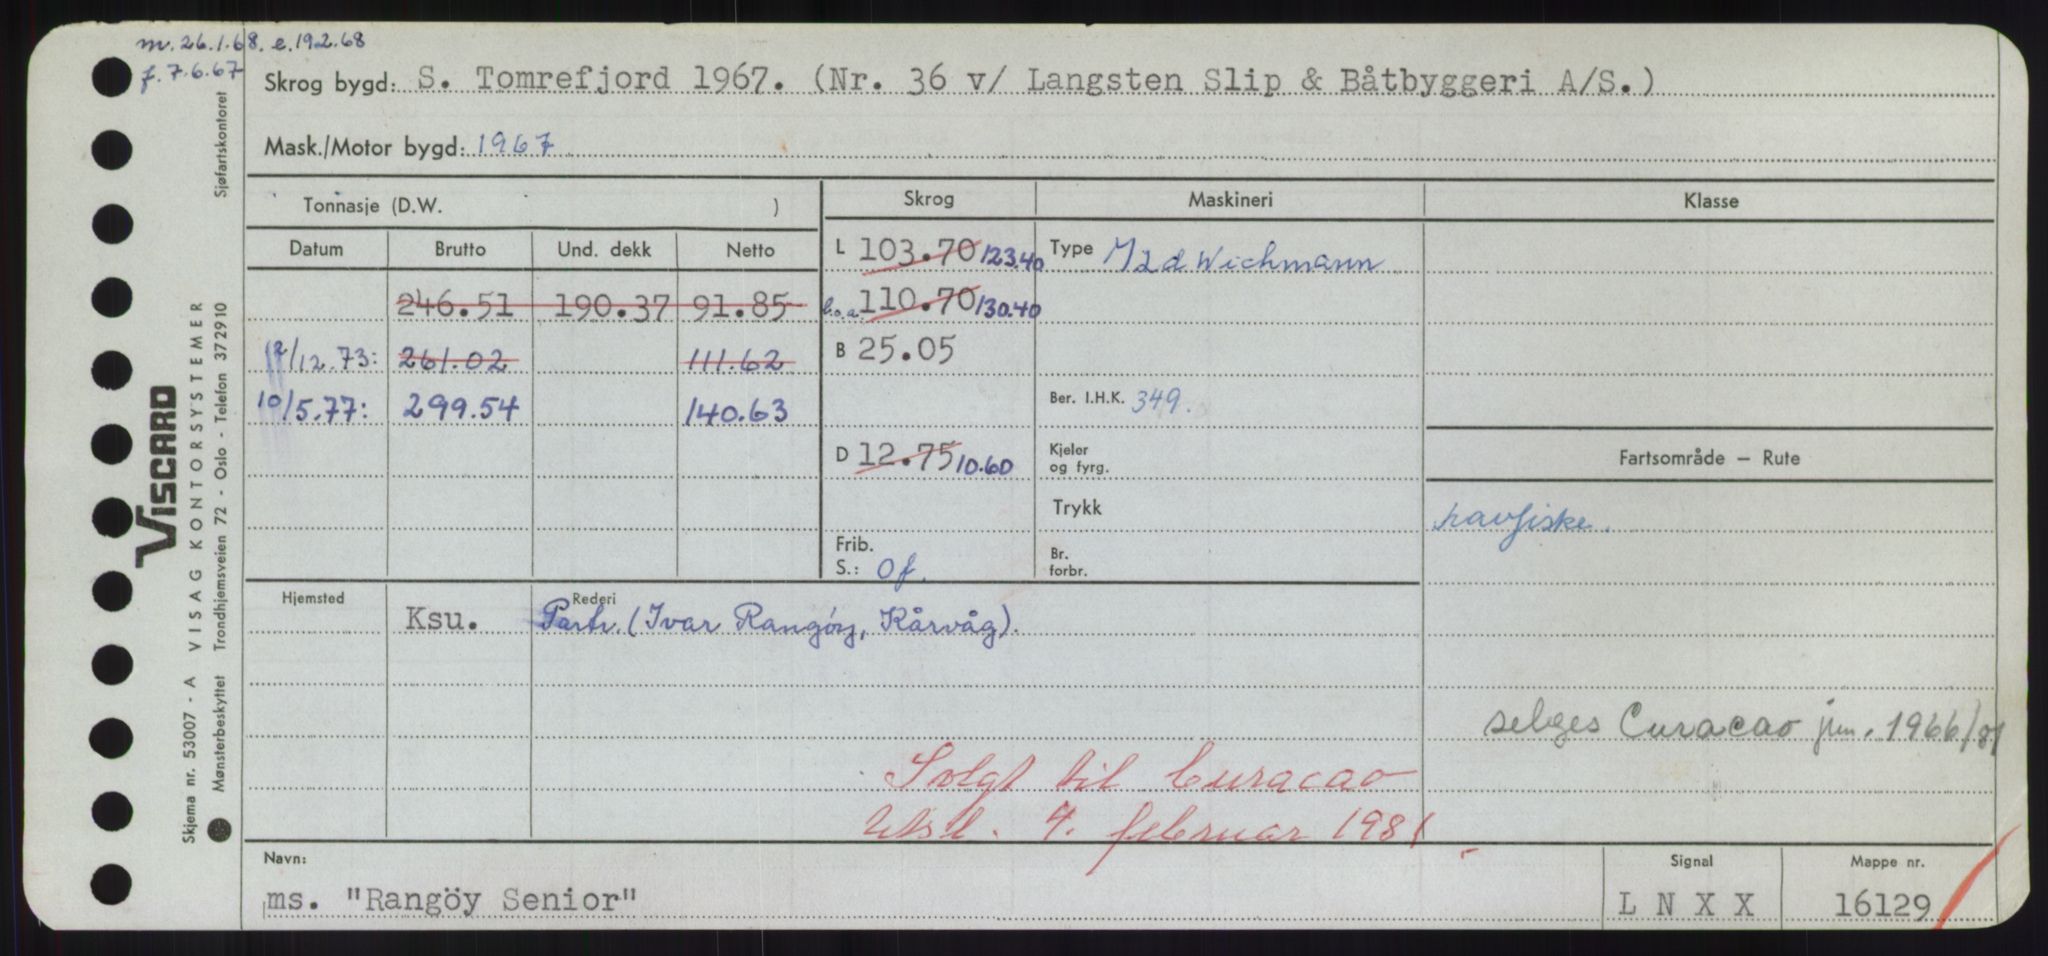 m. 26.1.68. e. 19.2.68
f. 7.6.67
Skrog bygd: S. Tomrefjord 1967. (Nr. 36 v/ Langsten Slip & Båtbyggeri A/S.)
Mask./Motor bygd: 1967
Tonnasje (D.W. )
Skrog Maskineri Klasse
Datum Brutto Und. dekk Netto
L 103.70 123.40 Type M2d Wichmann
246.51 190.37 91.85 l.o.a. 110.70 130.40
12/12.73: 261.02 111.62 B 25.05
10/5.77: 299.54 140.63 Ber. I.H.K. 349.
D 12.75 10.60 Kjeler og fyrg. Fartsområde – Rute
Trykk havfiske.
Frib. S.: Of. Br. forbr.
Hjemsted Ksu. Rederi Partr. (Ivar Rangöy, Kårvåg).
selges Curacao jnr. 1966/81
Solgt til Curacao
Utsl. 4. februar 1981
Navn: Signal Mappe nr.
ms. "Rangöy Senior" L N X X 16129
Sjøfartskontoret
VISCARD
Skjema nr. 53007 - A VISAG KONTORSYSTEMER
Mønsterbeskyttet Trondhjemsveien 72 - Oslo - Telefon 372910